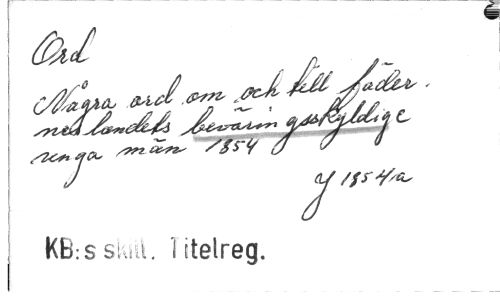 Ord
Några ord om och till fäder-
neslandets beväringsskyldige
unga män 1854
J 1854a
KB:s skill. Titelreg.